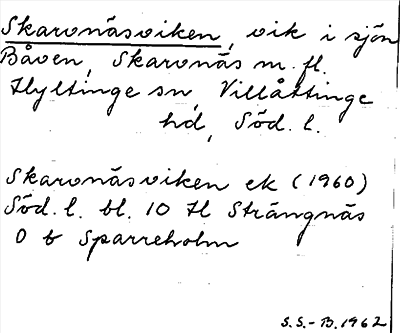 Skarvnäsviken, vik i sjön
Båven, Skarvnäs m. fl.
Hyltinge sn, Villåttinge
hd, Söd. l.
Skarvnäsviken ek (1960)
Söd. l. bl. 10 H Strängnäs
0 b Sparreholm
S.S.-B. 1962